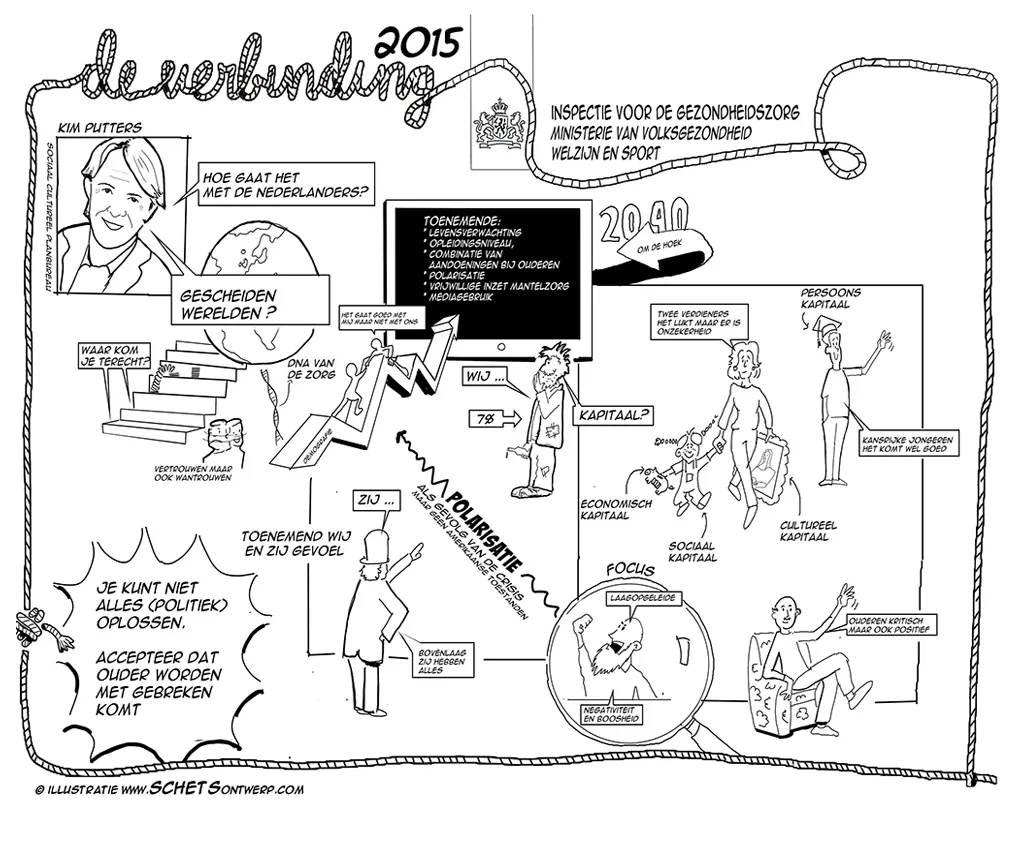 de verbinding 2015
INSPECTIE VOOR DE GEZONDHEIDSZORG
MINISTERIE VAN VOLKSGEZONDHEID
WELZIJN EN SPORT
KIM PUTTERS
SOCIAAL CULTUREEL PLANBUREAU
HOE GAAT HET
MET DE NEDERLANDERS?
GESCHEIDEN
WERELDEN ?
TOENEMENDE:
* LEVENSVERWACHTING
* OPLEIDINGSNIVEAU,
* COMBINATIE VAN
AANDOENINGEN BIJ OUDEREN
* POLARISATIE
* VRIJWILLIGE INZET MANTELZORG
* MEDIAGEBRUIK
2040
OM DE HOEK
HET GAAT GOED MET
MIJ MAAR NIET MET ONS
WAAR KOM
JE TERECHT?
DNA VAN
DE ZORG
DEMOGRAFIE
VERTROUWEN MAAR
OOK WANTROUWEN
WIJ ...
7%
KAPITAAL?
TWEE VERDIENERS
HET LIJKT MAAR ER IS
ONZEKERHEID
PERSOONS
KAPITAAL
KANSRIJKE JONGEREN
HET KOMT WEL GOED
ECONOMISCH
KAPITAAL
SOCIAAL
KAPITAAL
CULTUREEL
KAPITAAL
ZIJ ...
TOENEMEND WIJ
EN ZIJ GEVOEL
POLARISATIE
ALS GEVOLG VAN DE CRISIS
MAAR GEEN AMERIKAANSE TOESTANDEN
BOVENLAAG
ZIJ HEBBEN
ALLES
FOCUS
LAAGOPGELEIDE
NEGATIVITEIT
EN BOOSHEID
OUDEREN KRITISCH
MAAR OOK POSITIEF
JE KUNT NIET
ALLES (POLITIEK)
OPLOSSEN.
ACCEPTEER DAT
OUDER WORDEN
MET GEBREKEN
KOMT
© ILLUSTRATIE WWW.SCHETSONTWERP.COM